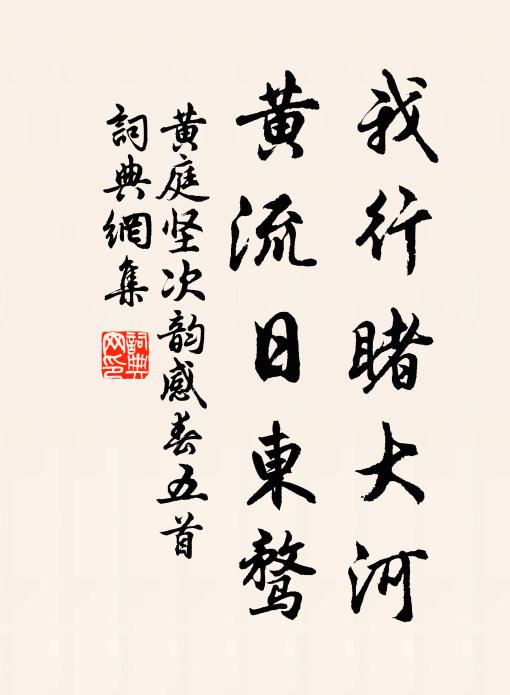 我行睹大河
黃流日東鹜
黃庭坚次韵感春五首
詞典網集
詞典网印